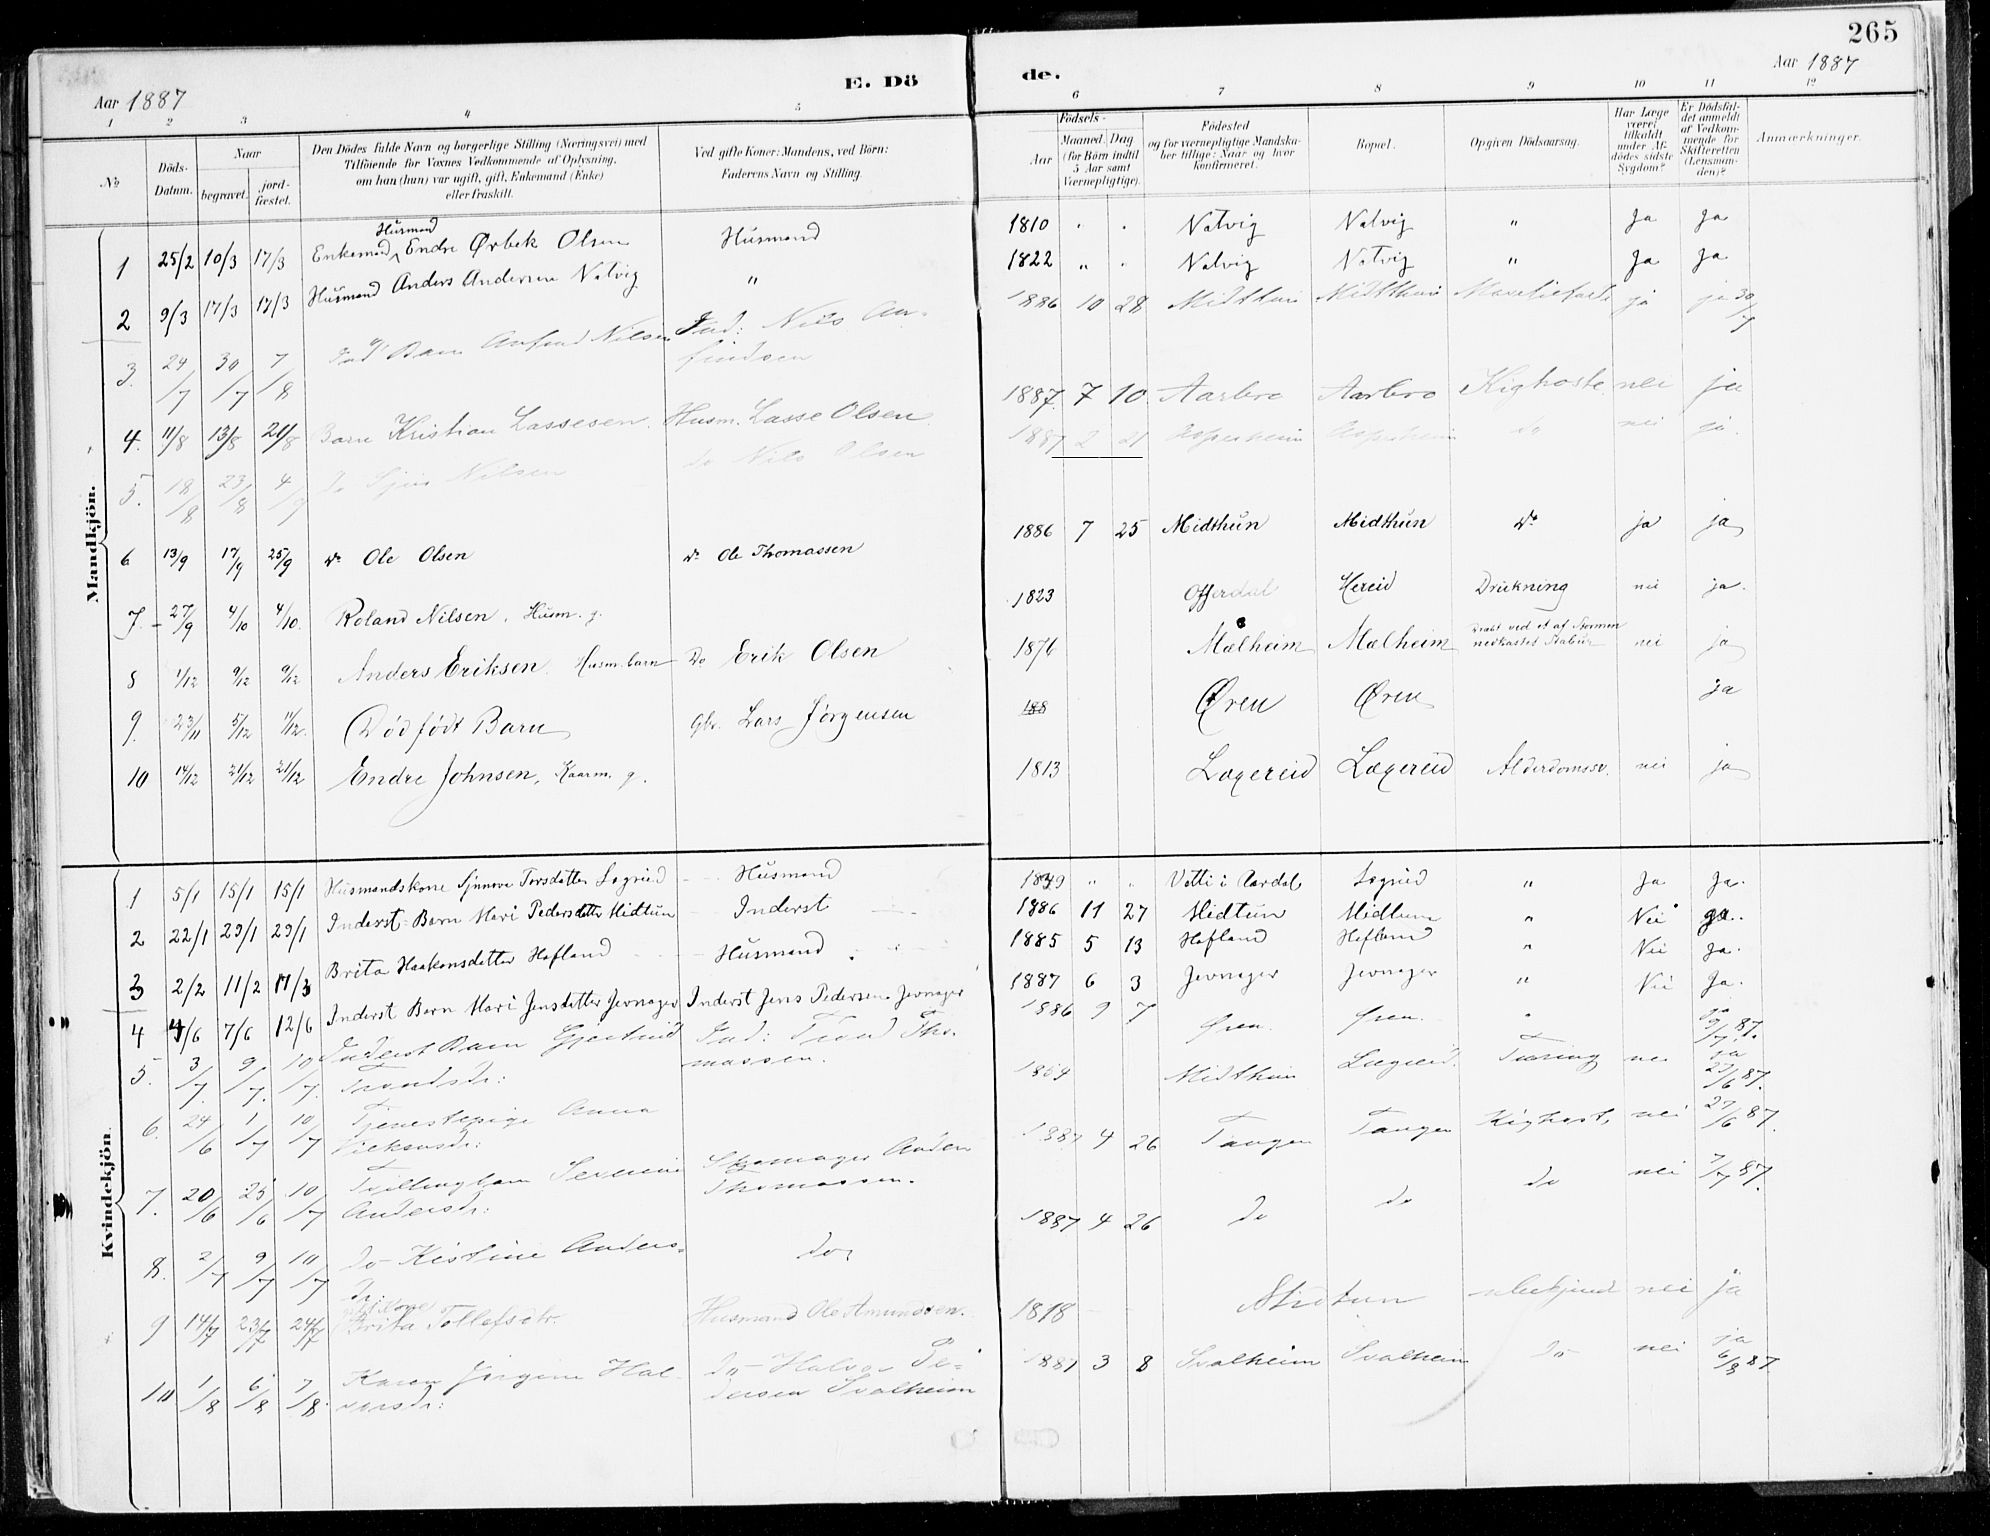 265
Aar 1887
E. Dö de.
Aar 1887
1 2 3 4 5 6 7 8 9 10 11 12
№
Döds-Datum.
Naar
begravet.
jord-fæstet.
Den Dödes fulde Navn og borgerlige Stilling (Næringsvei) med
Tilföiende for Voxnes Vedkommende af Oplysning,
om han (hun) var ugift, gift, Enkemand (Enke)
eller fraskilt.
Ved gifte Koner: Mandens, ved Börn:
Faderens Navn og Stilling.
Födsels-
Aar
Maaned. Dag
(for Börn indtil
5 Aar samt
Værnepligtige).
Födested
og for værnepligtige Mandska-
ber tillige: Naar og hvor
konfirmeret.
Bopæl.
Opgiven Dödsaarsag.
Har Læge
været
tilkaldt
under Af-
dödes sidste
Sygdom?
Er Dödsfal-
det anmeldt
af Vedkom-
mende for
Skifteretten
(Lensman-
den)?
Anmærkninger.
Mandkjön.
1 25/2 10/3 17/3 Enkemand Husmand Endre Ørbek Olsen Husmand 1810 " " Natvig Natvig " Ja Ja
2 9/3 17/3 17/3 Husmand Anders Andersen Natvig " 1822 " " Natvig Natvig " Ja Ja
3. 24/7 30/7 7/8 Ind. Barn Anfind Nilsen Ind: Nils An-
findsen 1886 10 28 Midthun Midthun ja ja 30/7
4. 11/8 13/8 21/8 Barn Kristian Lassesen. Husm. Lasse Olsen 1887. 7 10 Aarbro Aarbro Kighoste nei ja
5. 18/8 23/8 4/9 do Nilsen do Nils Olsen 1887 2 21 Asperheim Asperheim do nei ja.
6 13/9 17/9 25/9 do Ole Olsen do Ole Thomassen 1886 7 25 Midthun Midthun do ja ja
7. 27/9 4/10 4/10. Roland Nilsen, Husm. g. 1823 Offerdal Hereid Drukning nei ja.
8 1/12 9/12 9/12 Anders Eriksen. Husm. barn Do Erik Olsen 1876 Mælheim Mælheim dræbt ved et af Stormen
nedkastet Stabur nei ja
9. 23/11 5/12 11/12. Dødfødt Barn Gbr. Lars Jørgensen 188 Øren Øren ja
10 14/12 21/12 21/12 Endre Johnsen, Kaarm. g. 1813 Lægereid Lægereid Alderdomssv. nei ja
Kvindekjön.
1 5/1 15/1 15/1 Husmandskone Synneve Torsdatter Lægreid Husmand 1849 " " Vetti i Aardal Lægreid " Ja Ja.
2 22/1 29/1 29/1 Inderst-Barn Mari Pedersdatter Midtun Inderst 1886 11 27 Midtun Midtun " Nei ja.
3 2/2 11/2 17/3 Brita Haakonsdatter Hofland Husmand 1885 5 13 Hofland Hofland " Nei Ja.
4 4/6 7/6 12/6 Inderst Barn Mari Jensdatter Jevnager Inderst Jens Pedersen Jevnager 1887 6 3 Jevnager Jevnager " Nei Ja.
5. 3/7. 9/7. 10/7. Inderst Barn Gjertrud
Trondsdr: Ind: Trond Tho-
massen. 1886 9 7 Øren. Øren. " ja 9/7 87.
6. 24/6 1/7 10/7 Tjenestepige Anna 1864 Midthun Lægreid. Tæring nei ja 27/6 87.
7. 20/6 25/6 10/7 Tvillingbarn Severine
Andersdr: Skomager Anders
Thomassen. 1887 4 26 Tangen Tangen Kighost, nei 27/6 87.
8. 2/7 9/7 10/7 do Kistine Anders-
dr: do 1887 4 26 do do do nei 7/7 87.
9 14/7 23/7 24/7 gift Kone
Brita Tollefsdtr. Husmand Ole Amundsen. 1818 Midtun ubekjend nei ja
10 1/8 6/8 7/8. Karen Jørgine Hal-
vorsdr: do Halvor Pe-
dersen Svalheim 1887 3 8 Svalheim Svalheim do nei ja 6/8 87.